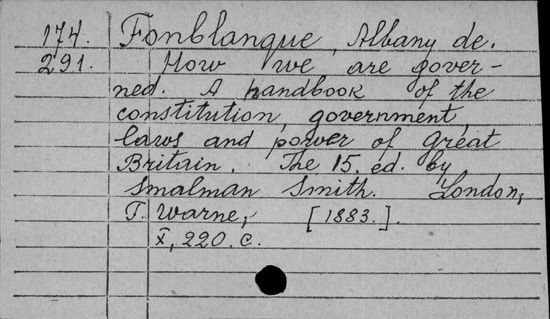 174. Fonblanque, Albany de.
291. How we are gover-
ned. A handbook of the
constitution, government,
laws and power of Great
Britain. The 15. ed. by
Smalman Smith. London,
F. Warne, [1883.].
X, 220. c.